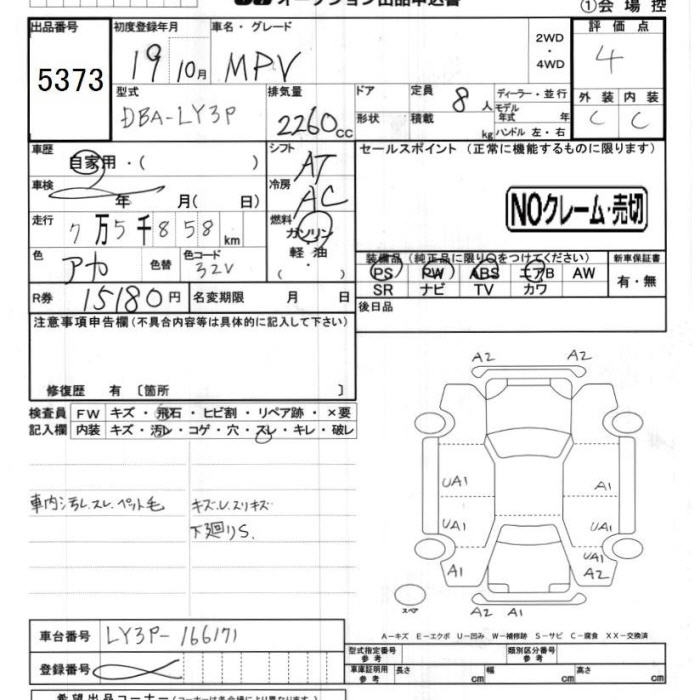 オークション出品申込書
①会場控
出品番号 初度登録年月 車名・グレード 2WD 4WD 評価点
5373 19 10月 MPV 4
型式 排気量 ドア 定員 8人 ディーラー・並行 外装 内装
DBA-LY3P 2260cc 形状 積載 kg モデル年式 年 C C
ハンドル 左・右
車歴 自家用・( ) シフト AT セールスポイント (正常に機能するものに限ります)
車検 年 月( 日) 冷房 AC
NOクレーム・売切
走行 7万5千858km 燃料 ガソリン・軽油・
色 アカ 色替 色コード 32V
装備品 (純正品に限り○をつけてください) 新車保証書
PS PW ABS エアB AW 有・無
SR ナビ TV カワ
R券 15180円 名変期限 月 日 後日品
注意事項申告欄(不具合内容等は具体的に記入して下さい)
修復歴 有 〔箇所 〕
検査員 FW キズ・飛石・ヒビ割・リペア跡・×要
記入欄 内装 キズ・汚レ・コゲ・穴・スレ・キレ・破レ
車内汚レ.スレ.ペット毛 キズ.U.スリキズ
下廻りS.
A2 A2
UA1 A1
UA1 UA1
UA1
A1 A2
スペア A2 A1
A－キズ E－エクボ U－凹み W－補修跡 S－サビ C－腐食 XX－交換済
車台番号 LY3P-166171
登録番号
型式指定番号 参考 類別区分番号 参考
車庫証明用 参考 長さ cm 幅 cm 高さ cm
希望出品コーナー(コーナーは各会場により異なります)